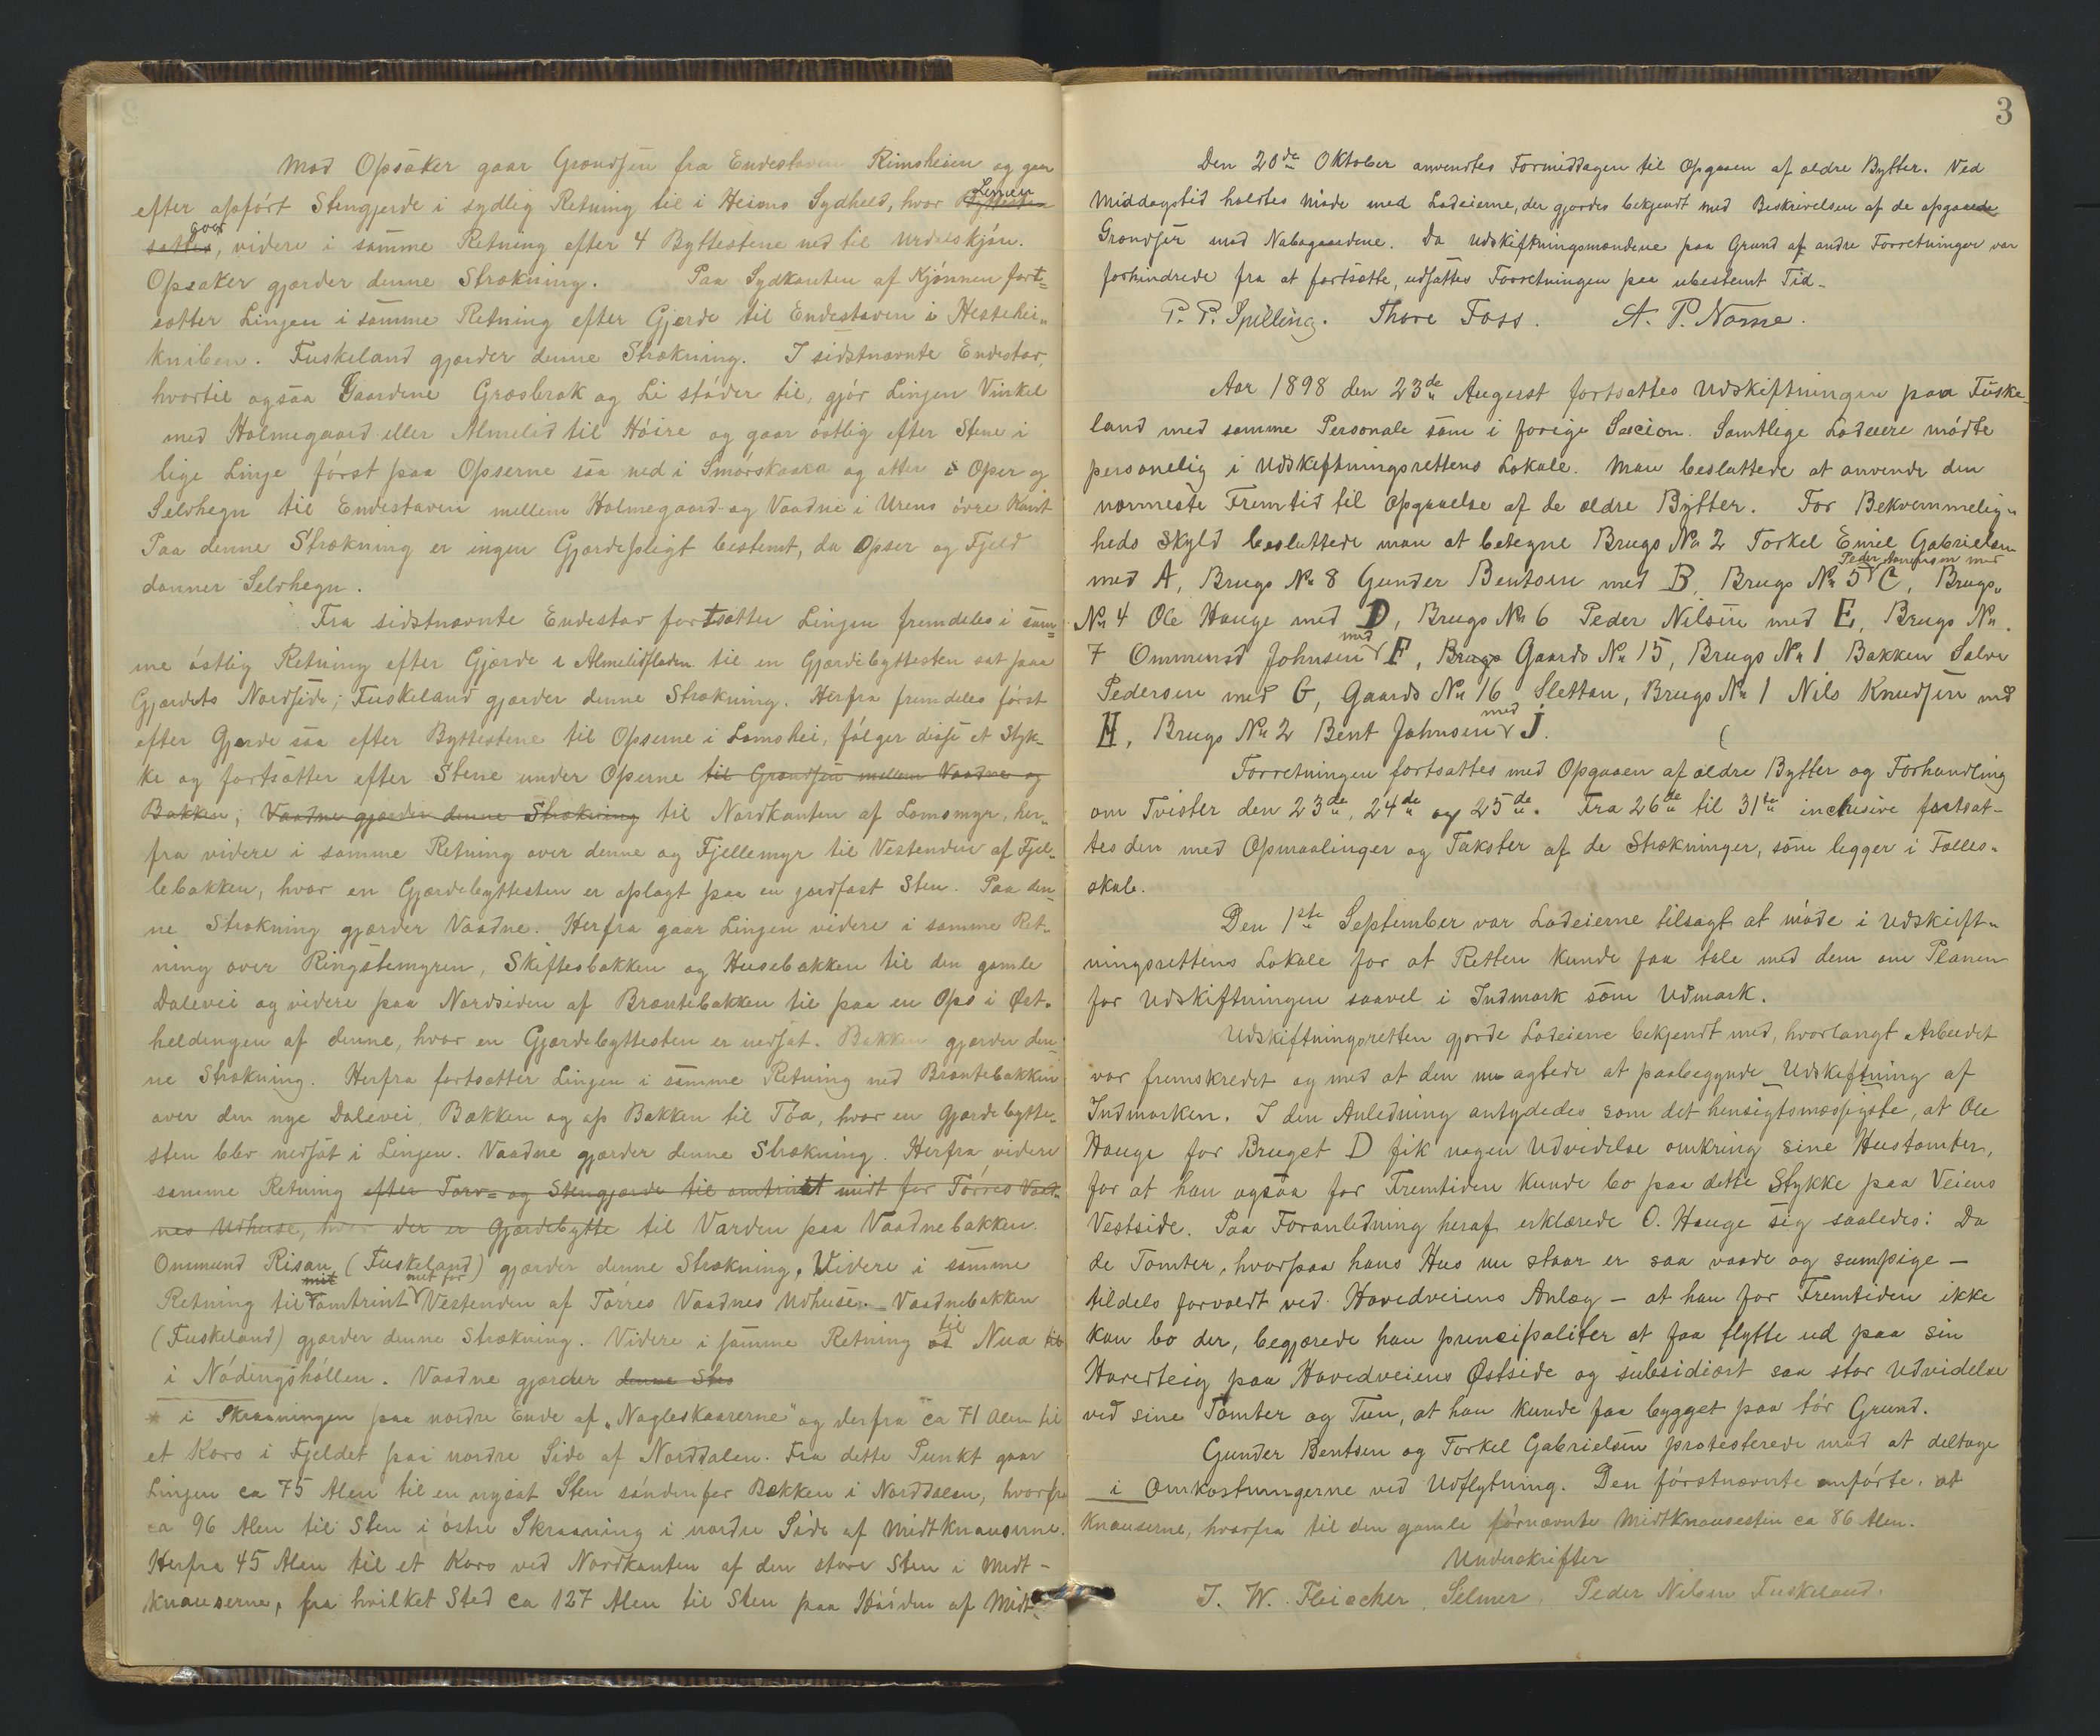 Mod Opsaker gaar Grændsen fra Endestaven Rimsheien og gaar
efter opført Stengjerde i sydlig Retning til i Heiens Sydheld, hvor Byttesten Linien
sattes over, videre i samme Retning efter 4 Byttestene ned til Urdalskjøn.
Opsaker gjærder denne Strækning. Paa Sydkanten af Kjønnen fort=
sætter Linjen i samme Retning efter Gjerde til Endestaven i Hestehei„
kniben. Fuskeland gjærder denne Strækning. I sidstnævnte Endestav,
hvortil ogsaa Gaardene Græsbrok og Li støder til, gjør Linjen Vinkel
med Holmegaard eller Almelid til Høire og gaar østlig efter Stene i
lige Linje først paa Opserne saa ned i Smørskaara og atter i Oper og
Selvhegn til Endestaven mellem Holmegaard og Vaadne i Urens øvre Kant
Paa denne Strækning er ingen Gjærdepligt bestemt, da Opser og Fjeld
danner Selvhegn.
Fra sidstnævnte Endestav fortsætter Linjen fremdeles i sam=
me østlig Retning efter Gjærde i Almelidfladen til en Gjærdebyttesten sat paa
Gjærdets Nordside; Fuskeland gjærder denne Strækning. Herfra fremdeles først
efter Gjerde saa efter Byttestene til Opserne i Lomshei, følger disse et Styk-
ke og fortsætter efter Stene under Operne til Grændsen mellem Vaadne og
Bakken; Vaadne gjærder denne Strækning til Nordkanten af Lomsmyr, her„
fra videre i samme Retning over denne og Fjellemyr til Vestenden af Fjel„
lebakken, hvor en Gjærdebyttesten er oplagt paa en jordfast Sten. Paa den=
ne Strækning gjærder Vaadne. Herfra gaar Linjen videre i samme Ret„
ning over Ringstemyren, Skiftesbakken og Husebakken til den gamle
Dalevei og videre paa Nordsiden af Bræntebakken til paa en Ops i Øst„
heldingen af denne, hvor en Gjærdebyttesten er nedsat. Bakken gjærder den=
ne Strækning. Herfra fortsætter Linjen i samme Retning ned Bræntebakken
over den nye Dalevei, Bækken og op Bakken til Tøa, hvor en Gjærdebytte„
sten blev nedsat i Linjen. Vaadne gjærder denne Strækning. Herfra videre
samme Retning efter Torv= og Stengjærde til omtrindt midt for Tørres Vaad„
nes Udhuse, hvor der er Gjærdebytte til Varden paa Vaadnebakken.
Ommund Risan (Fuskeland) gjærder denne Strækning. Videre i samme
Retning til mit omtrint mit for Vestenden af Tørres Vaadnes Udhuse. Vaadnebakken
(Fuskeland) gjærder denne Strækning. Videre i samme Retning ad til Nua til
i Nødingshøllen. Vaadne gjærder denne Stræ
* i Skraaningen paa nordre Ende af „Nagleskaarerne" og derfra ca 71 Alen til
et Kors i Fjeldet paa nordre Side af Norddalen. Fra dette Punkt gaar
Linjen ca 75 Alen til en nysat Sten søndenfor Bækken i Norddalen, hvorfra
ca 96 Alen til Sten i østre Skraaning i nordre Side af Midtknauserne.
Herfra 45 Alen til et Kors ved Nordkanten af den store Sten i Midt-
knauserne, fra hvilket Sted ca 127 Alen til Sten paa Høiden af Midt-
3
Den 20de Oktober anvendtes Formiddagen til Opgaaen af ældre Bytter. Ved
Middagstid holdtes Møde med Lodeierne, der gjordes bekjendt med Beskrivelsen af de opgaaede
Grændser mod Nabogaardene. Da Udskiftningsmændene paa Grund af andre Forretninger var
forhindrede fra at fortsætte, udsattes Forretningen paa ubestemt Tid.
P. P. Spilling. Thore Foss. A. P. Nome.
Aar 1898 den 23de August fortsattes Udskiftningen paa Fuske-
land med samme Personale som i forige Session. Samtlige Lodeiere mødte
personelig i Udskiftningsrettens Lokale. Man besluttede at anvende den
nærmeste Fremtid til Opgaaelse af de ældre Bytter. For Bekvemmelig„
heds Skyld besluttede man at betegne Brugs No 2 Torkel Emil Gabrielsen
med A, Brugs No 8 Gunder Bentsen med B, Brugs No 5 Peder Aanensen med C, Brugs„
No 4 Ole Hauge med D, Brugs No 6 Peder Nilsen med E, Brugs No
7 Ommund Johnsen med F, Brugs Gaards No 15, Brugs No 1 Bakken Salve
Pedersen med G, Gaards No 16 Slettan, Brugs No 1 Nils Knudsen med
H, Brugs No 2 Bent Johnsen med J.
Forretningen fortsattes med Opgaaen af ældre Bytter og Forhandling
om Tvister den 23de, 24de og 25de. Fra 26de til 31te inclusive fortsat-
tes den med Opmaalinger og Takster af de Strækninger, som legger i Fælles„
skab.
Den 1ste September var Lodeierne tilsagt at møde i Udskift„
ningsrettens Lokale for at Retten kunde faa tale med dem om Planen
for Udskiftningen saavel i Indmark som Udmark.
Udskiftningsretten gjorde Lodeierne bekjendt med, hvorlangt Arbeidet
var fremskredet og med at den nu agtede at paabegynde Udskiftning af
Indmarken. I den Anledning antydedes som det hensigtsmæssigste, at Ole
Hauge for Bruget D fik nogen Udvidelse omkring sine Hustomter,
for at han ogsaa for Fremtiden kunde bo paa dette Stykke paa Veiens
Vestside. Paa Foranledning heraf erklærede O. Hauge sig saaledes: Da
de Tomter, hvorpaa hans Hus nu staar er saa vaade og sumpige –
tildels forvoldt ved Hovedveiens Anlæg – at han for Fremtiden ikke
kan bo der, begjærede han principaliter at faa flytte ud paa sin
Haverteig paa Hovedveiens Østside og subsidiært saa stor Udvidelse
ved sine Tomter og Tun, at han kunde faa bygget paa tør Grund.
Gunder Bentsen og Torkel Gabrielsen protesterede mod at deltage
i Omkostningerne ved Udflytning. Den førstnævnte anførte, at
Knauserne, hvorfra til den gamle førnævnte Midtknausesten ca 86 Alen.
Underskrifter
J. W. Fleischer, Selmer, Peder Nilsen Fuskeland.